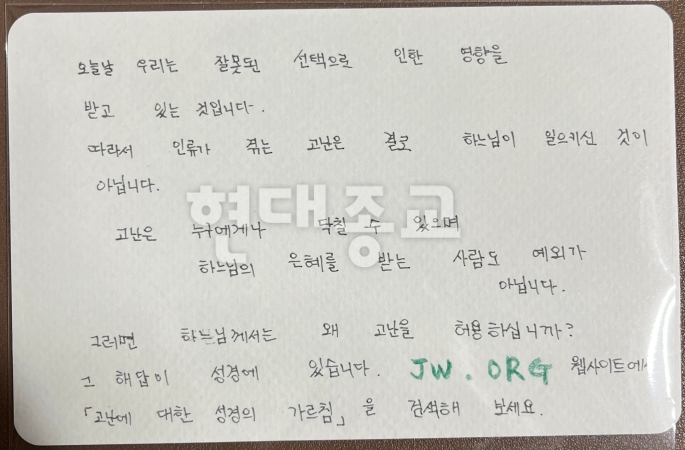 오늘날 우리는 잘못된 선택으로 인한 영향을
받고 있는 것입니다.
따라서 인류가 겪는 고난은 결코 하느님이 일으키신 것이
아닙니다.
현대종교
고난은 누구에게나 닥칠 수 있으며
하느님의 은혜를 받는 사람도 예외가
아닙니다.
그러면 하느님께서는 왜 고난을 허용하십니까?
그 해답이 성경에 있습니다. JW.ORG 웹사이트에서
「고난에 대한 성경의 가르침」을 검색해 보세요.